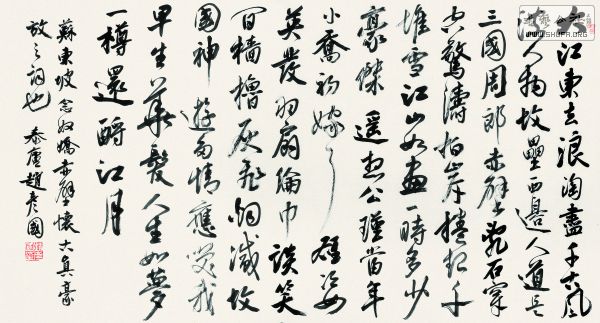 大江東去浪淘盡千古風
流人物故壘西邊人道是
三國周郎赤壁亂石穿
空驚濤拍岸捲起千
堆雪江山如畫一時多少
豪傑遙想公瑾當年
小喬初嫁了雄姿
英發羽扇綸巾談笑
間檣櫓灰飛烟滅故
國神遊多情應笑我
早生華髮人生如夢
一樽還酹江月
蘇東坡念奴嬌赤壁懷古真豪
放之詞也 趙彥國